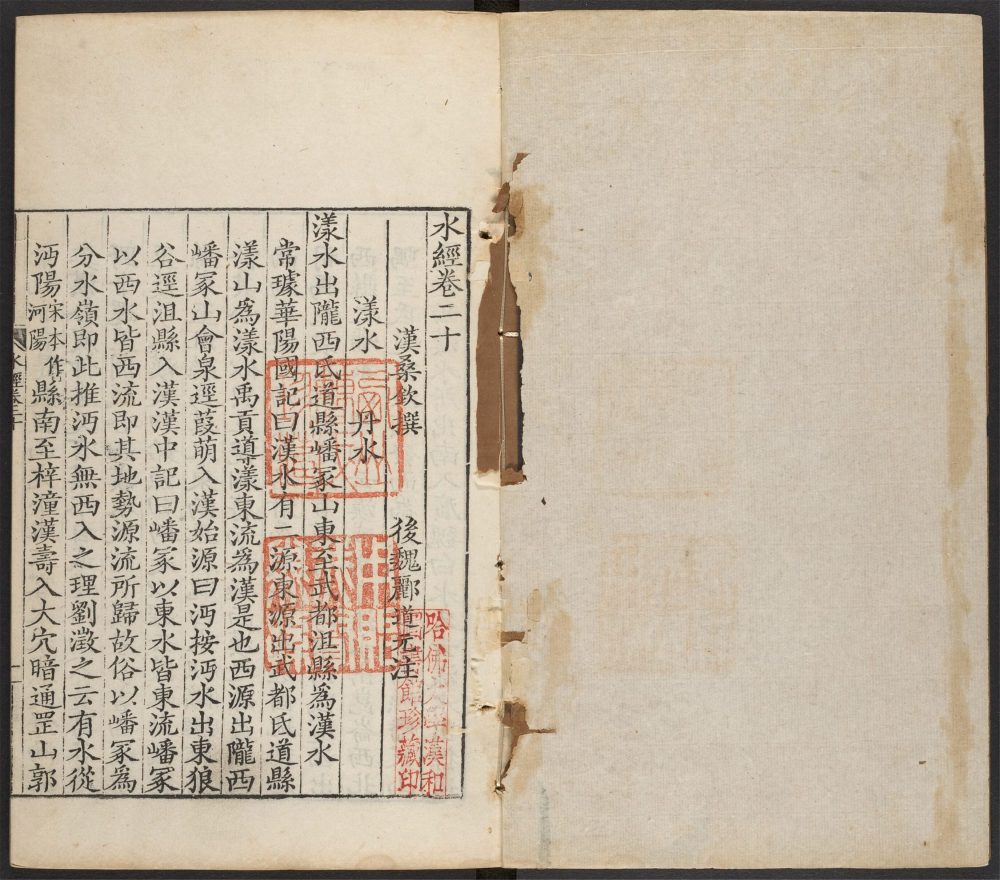 水經卷二十
漢桑欽撰 後魏酈道元注
漾水 丹水
漾水出隴西氐道縣嶓冢山東至武都沮縣爲漢水
常璩華陽國記曰漢水有二源東源出武都氐道縣
漾山爲漾水禹貢導漾東流爲漢是也西源出隴西
嶓冢山會泉逕葭萌入漢始源曰沔按沔水出東狼
谷逕沮縣入漢漢中記曰嶓冢以東水皆東流嶓冢
以西水皆西流即其地勢源流所歸故俗以嶓冢爲
分水嶺即此推沔水無西入之理劉澂之云有水從
沔陽宋本作河陽縣南至梓潼漢壽入大穴暗通罡山郭
水經卷二十
一
哈佛大學漢和
圖書館珍藏印